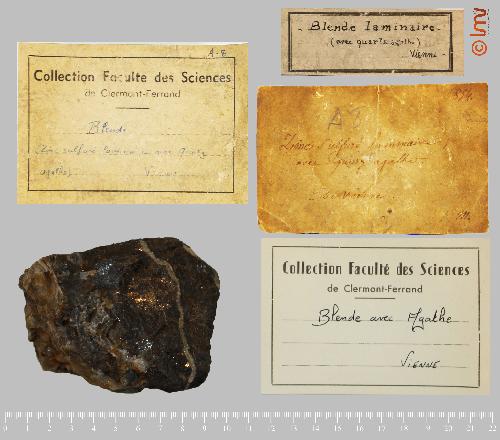 A-8
Collection Faculté des Sciences
de Clermont-Ferrand
Blende
Zinc sulfuré laminaire avec Quartz
agathe)
Vienne
- Blende laminaire -
(avec quartz agathe)
Vienne -
© lmv
A8
Zinc sulfuré laminaire
avec Quartz agathe -
Vienne
Collection Faculté des Sciences
de Clermont-Ferrand
Blende avec Agathe
VIENNE
0 1 2 3 4 5 6 7 8 9 10 11 12 13 14 15 16 17 18 19 20 21 22